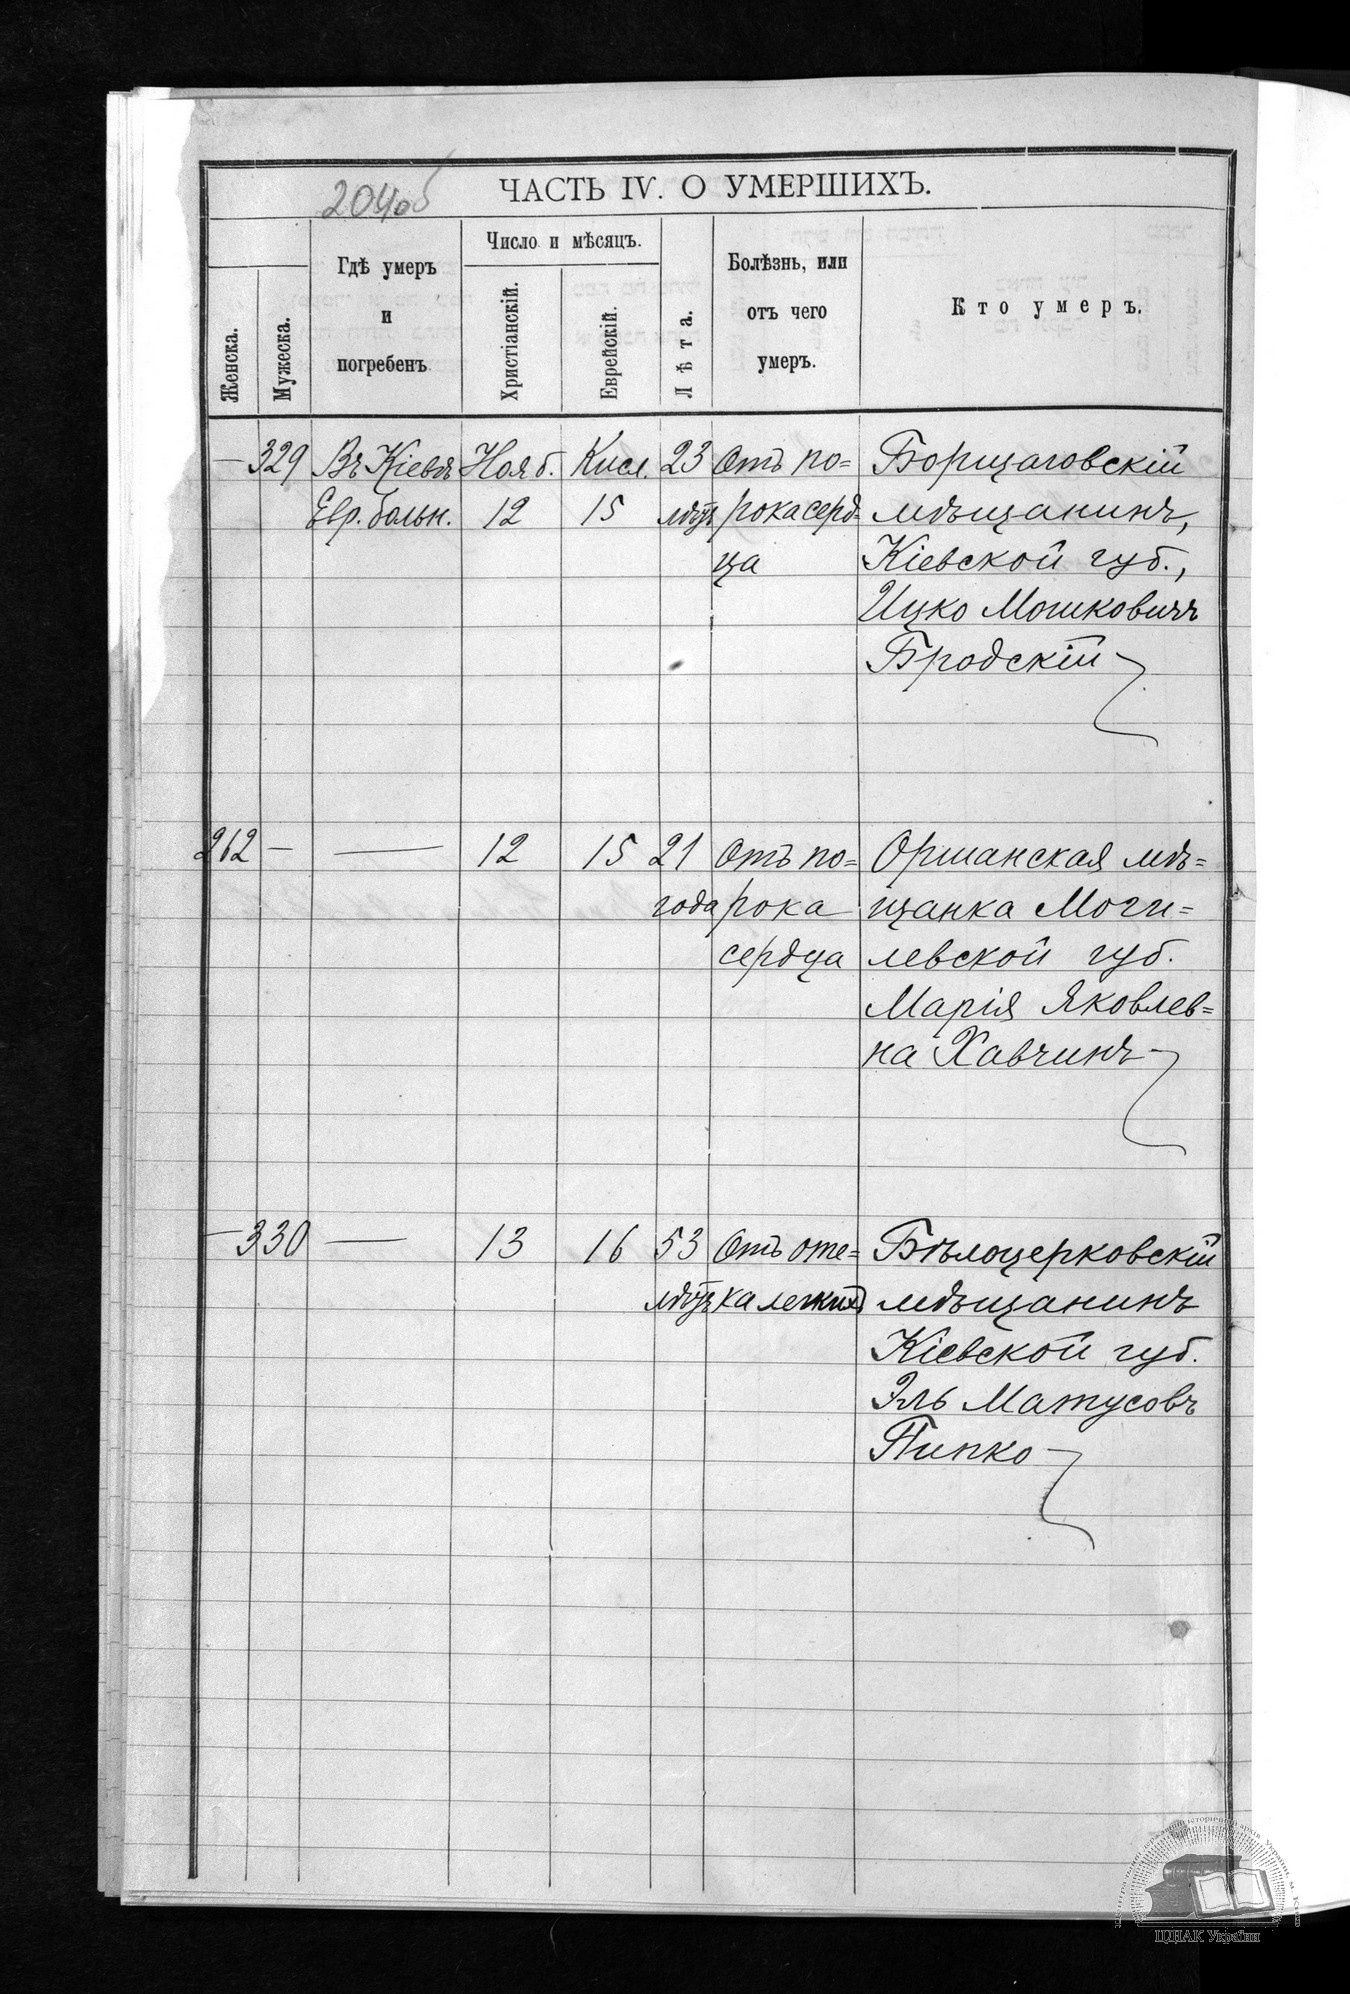 204об
ЧАСТЬ IV. О УМЕРШИХЪ.
Женска.
Мужеска.
Гдѣ умеръ
и
погребенъ
Число и мѣсяцъ.
Христіанскій.
Еврейскій.
Лѣта.
Болѣзнь, или
отъ чего
умеръ.
Кто умеръ.
— 329 Въ Кіевѣ Нояб. Кисл. 23 Отъ по= Борщаговскій
Евр. больн. 12 15 лѣтъ рока серд- мѣщанинъ,
ца Кіевской губ.,
Ицко Мошковичъ
Бродскій
262 — — 12 15 21 Отъ по= Оршанская мѣ=
года рока щанка Моги=
сердца левской губ.
Марія Яковлев=
на Хавчинъ
— 330 — 13 16 53 Отъ оте= Бѣлоцерковскій
лѣтъ ка легкихъ мѣщанинъ
Кіевской губ.
Эль Матусовъ
Пипко
ЦДІАК України